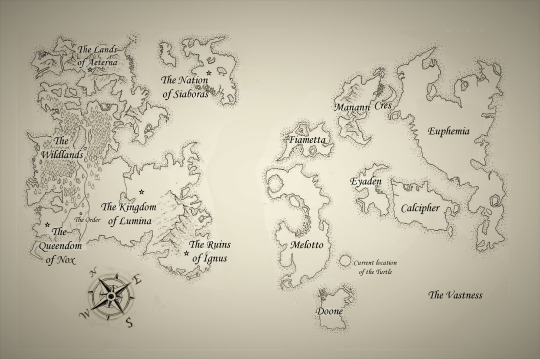 The Lands
of Aeterna
The Nation
of Siaboras
Manann
Cres
Euphemia
Fiametta
The
Wildlands
Eyaden
Calcipher
The Kingdom
of Lumina
The Order
The
Queendom
of Nox
The Ruins
of Ignus
Melotto
Current location
of the Turtle
The Vastness
Doone
N
E
S
W